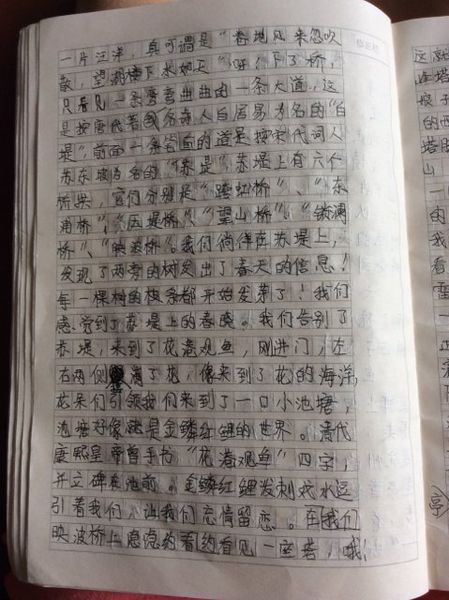 一片汪洋，真可谓是“卷地风来忽吹
散，望湖楼下水如天”。下了桥，
只看见一条弯弯曲曲由一条大道，这
是按唐代著名诗人白居易为名的“白
堤”，前面一条笔直的道是按宋代词人
苏东坡为名的“苏堤”，苏堤上有六个
桥梁，它们分别是“跨虹桥”、“东
浦桥”、“压堤桥”、“望山桥”、“锁澜
桥”、“映波桥”。我们徜徉在苏堤上，
发现了两旁的树发出了春天的信息！
每一棵树的枝条都开始发芽了！我们
感觉到了苏堤上的春晓。我们告别了
苏堤，来到了花港观鱼，刚进门，左
右两侧满了花，像来到了花的海洋，
花朵们引领我们来到了一口小池塘，
池塘好像就是金鳞红鲤的世界。清代
康熙皇帝曾手书“花港观鱼”四字，
并立碑在池前。金鳞红鲤发刺戏水逗
引着我们，让我们恋情留恋。在我们
映波桥上隐隐约看约看见一座塔，哦！
这就
连塔
娘子
的西
塔
山
一
的
我
看
雷
亭